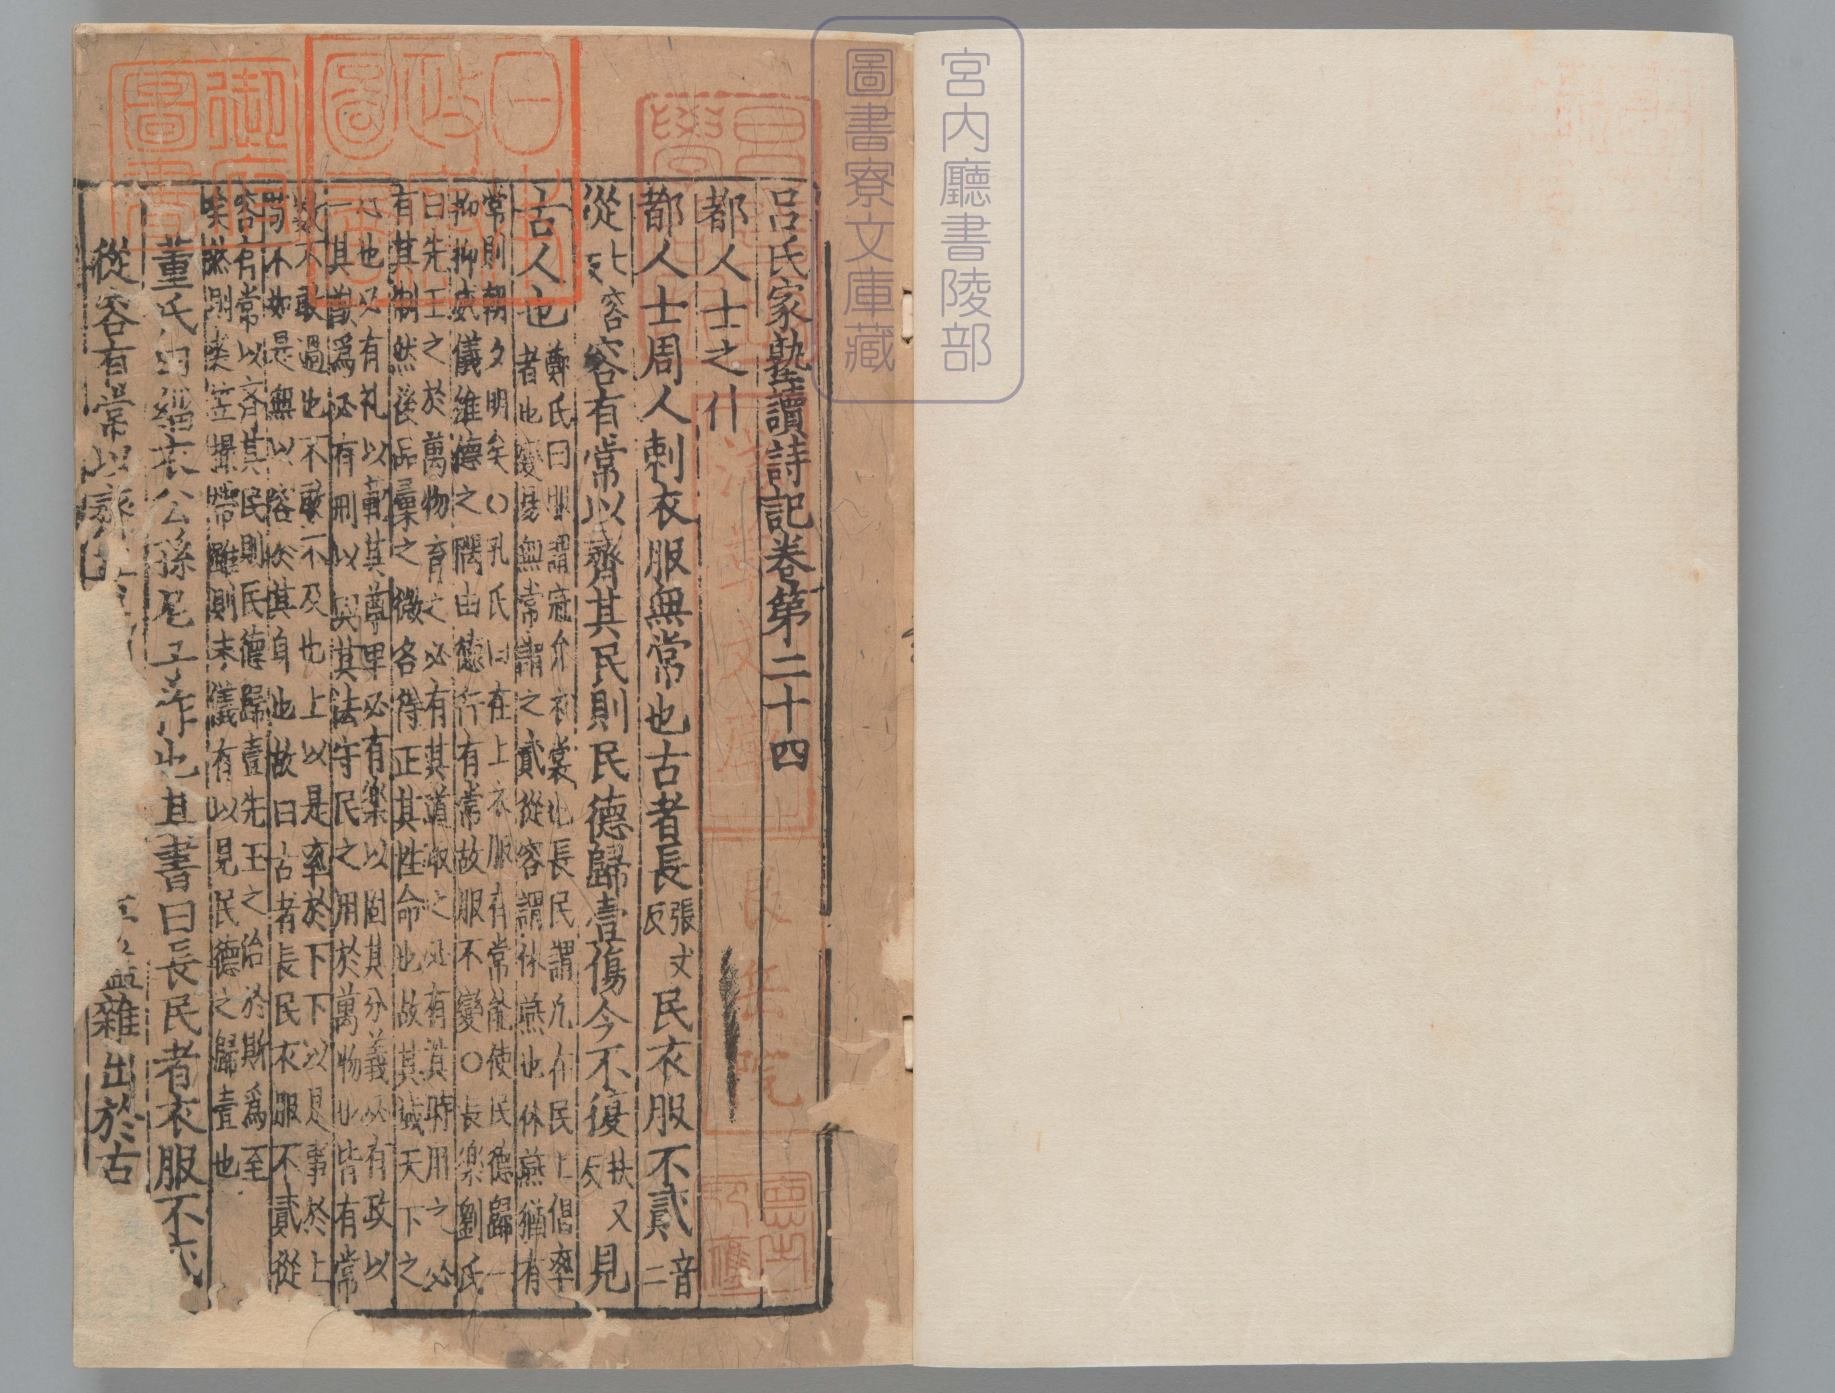 宮内廳書陵部
圖書寮文庫藏
呂氏家塾讀詩記卷第二十四
都人士之什
都人士周人刺衣服無常也古者長張丈反民衣服不貳音二
從七容反容有常以齊其民則民德歸壹傷今不復扶又反見
古人也鄭氏曰服謂冠弁衣裳也長民謂凢在民上倡率
者也變易無常謂之貳從容謂休燕也休燕猶有
常則朝夕明矣○孔氏曰在上衣服有常能使民德歸一
抑抑威儀維德之隅由德行有常故服不變○長樂劉氏
曰先王之於萬物育之必有其道取之必有其時用之必
有其制然後品彙之微各得正其性命也故其域天下之
心也必有礼以範其尊卑必有樂以固其分義必有政以
一其猷爲必有刑以其法守民之用於萬物也皆有常
數不敢過也不敢不及也上以是率於下下以是事於上
苟不如是無以容於其身也故曰古者長民衣服不貳從
容有常以齊其民則民德歸壹先王之治於斯爲至
矣然則笠撮帶雖則末儀有以見民德之歸壹也
董氏曰緇衣公孫尼子作也其書曰長民者衣服不貳
從容有常以雜出於古